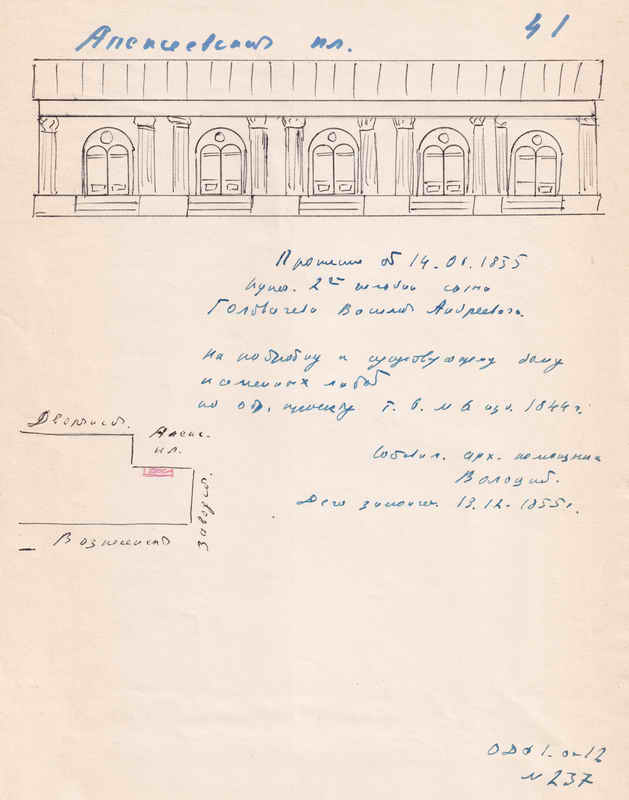 Алексеевская пл.
41
Прошение об 14.01.1855
купц. 2ой гильдии сына
Головачева Василия Андреевича.
на постройку к существующему дому
каменных лавок
по обр. проекту Г. В. №6 изд. 1844г.
Составил. арх. помощник
Дело закончен. 13.12.1855г.
Дворянст.
Алекс.
пл.
Заводск.
Вознесенск
ОДФ 1. оп 12
№237